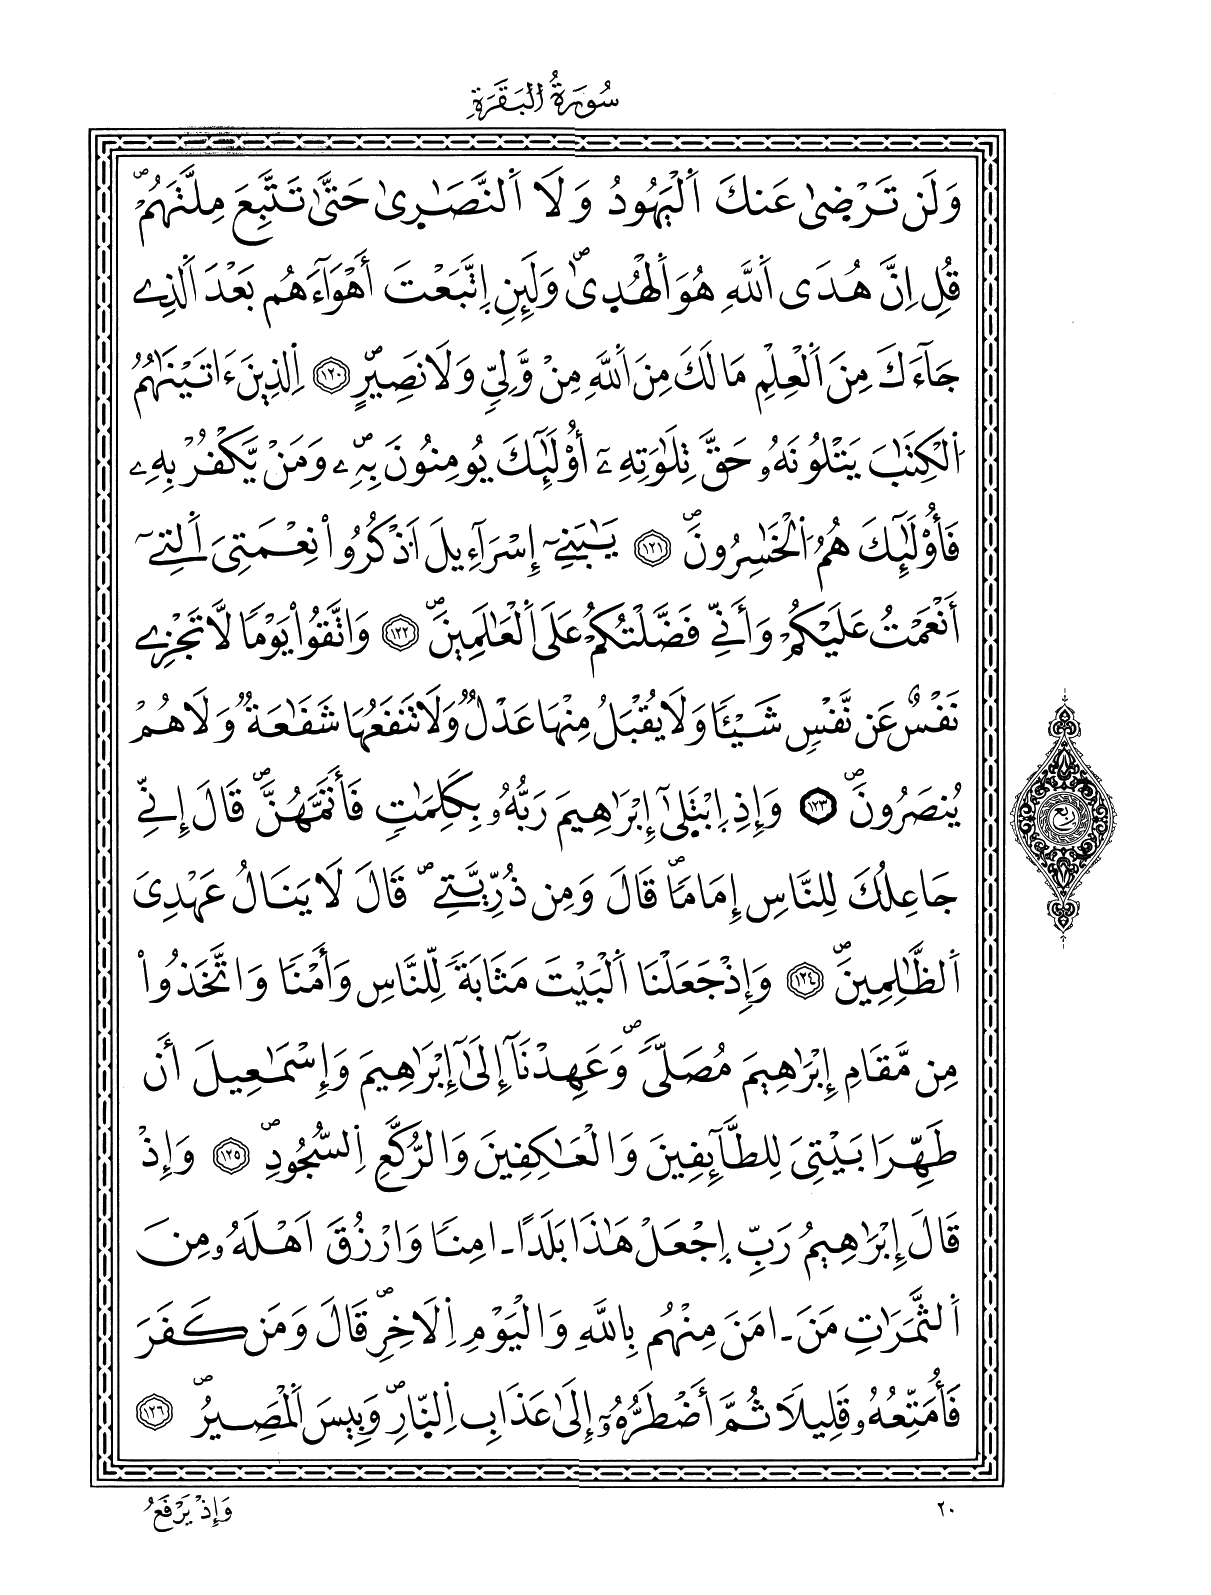 سُورَةُ الْبَقَرَةِ
وَلَن تَرْضىٰ عَنكَ اَ۬لْيَهُودُ وَلَا اَ۬لنَّصَٰرىٰ حَتَّىٰ تَتَّبِعَ مِلَّتَهُمْۖ
قُلِ اِنَّ هُدَى اَ۬للَّهِ هُوَ اَ۬لْهُدىٰۖ وَلَئِنِ اِ۪تَّبَعْتَ أَهْوَآءَهُم بَعْدَ اَ۬لذِے
جَآءَكَ مِنَ اَ۬لْعِلْمِ مَا لَكَ مِنَ اَ۬للَّهِ مِنْ وَّلِيّٖ وَلَا نَصِيرٍۖ ١٢٠ اِ۬لذِينَ ءَاتَيْنَٰهُمُ
اُ۬لْكِتَٰبَ يَتْلُونَهُۥ حَقَّ تِلَٰوَتِهِۦٓ أُوْلَٰٓئِكَ يُومِنُونَ بِهِۦۖ وَمَنْ يَّكْفُرْ بِهِۦ
فَأُوْلَٰٓئِكَ هُمُ اُ۬لْخَٰسِرُونَۖ ١٢١ يَٰبَنِےٓ إِسْرَآءِيلَ اَ۟ذْكُرُواْ نِعْمَتِيَ اَ۬لتِےٓ
أَنْعَمْتُ عَلَيْكُمْ وَأَنِّے فَضَّلْتُكُمْ عَلَى اَ۬لْعَٰلَمِينَۖ ١٢٢ وَاتَّقُواْ يَوْماٗ لَّا تَجْزِے
نَفْسٌ عَن نَّفْسٖ شَيْـٔاٗ وَلَا يُقْبَلُ مِنْهَا عَدْلٞ وَلَا تَنفَعُهَا شَفَٰعَةٞ وَلَا هُمْ
يُنصَرُونَۖ ١٢٣ وَإِذِ اِ۪بْتَلىٰٓ إِبْرَٰهِيمَ رَبُّهُۥ بِكَلِمَٰتٖ فَأَتَمَّهُنَّۖ قَالَ إِنِّے
جَاعِلُكَ لِلنَّاسِ إِمَاماٗۖ قَالَ وَمِن ذُرِّيَّتِےۖ قَالَ لَا يَنَالُ عَهْدِيَ
اَ۬لظَّٰلِمِينَۖ ١٢٤ وَإِذْ جَعَلْنَا اَ۬لْبَيْتَ مَثَابَةٗ لِّلنَّاسِ وَأَمْناٗ وَاتَّخَذُواْ
مِن مَّقَامِ إِبْرَٰهِيمَ مُصَلّىٗۖ وَعَهِدْنَآ إِلَىٰٓ إِبْرَٰهِيمَ وَإِسْمَٰعِيلَ أَن
طَهِّرَا بَيْتِيَ لِلطَّآئِفِينَ وَالْعَٰكِفِينَ وَالرُّكَّعِ اِ۬لسُّجُودِۖ ١٢٥ وَإِذْ
قَالَ إِبْرَٰهِيمُ رَبِّ اِ۪جْعَلْ هَٰذَا بَلَداً اٰمِناٗ وَارْزُقَ اَهْلَهُۥ مِنَ
اَ۬لثَّمَرَٰتِ مَنَ اٰمَنَ مِنْهُم بِاللَّهِ وَالْيَوْمِ اِ۬لَاخِرِۖ قَالَ وَمَن كَفَرَ
فَأُمَتِّعُهُۥ قَلِيلاٗ ثُمَّ أَضْطَرُّهُۥٓ إِلَىٰ عَذَابِ اِ۬لنّارِۖ وَبِيسَ اَ۬لْمَصِيرُۖ ١٢٦
ربع
٢٠
وَإِذْ يَرْفَعُ